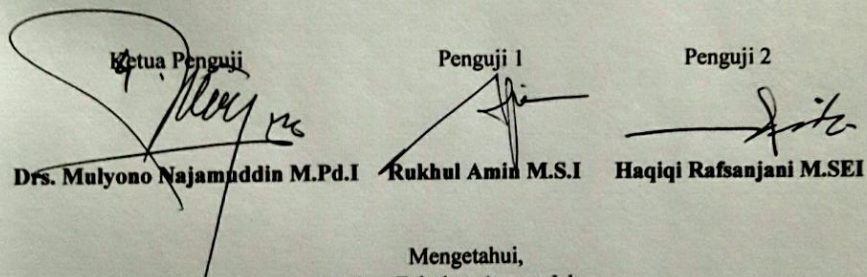 Ketua Penguji Penguji 1 Penguji 2
Drs. Mulyono Najamuddin M.Pd.I Rukhul Amin M.S.I Haqiqi Rafsanjani M.SEI
Mengetahui,